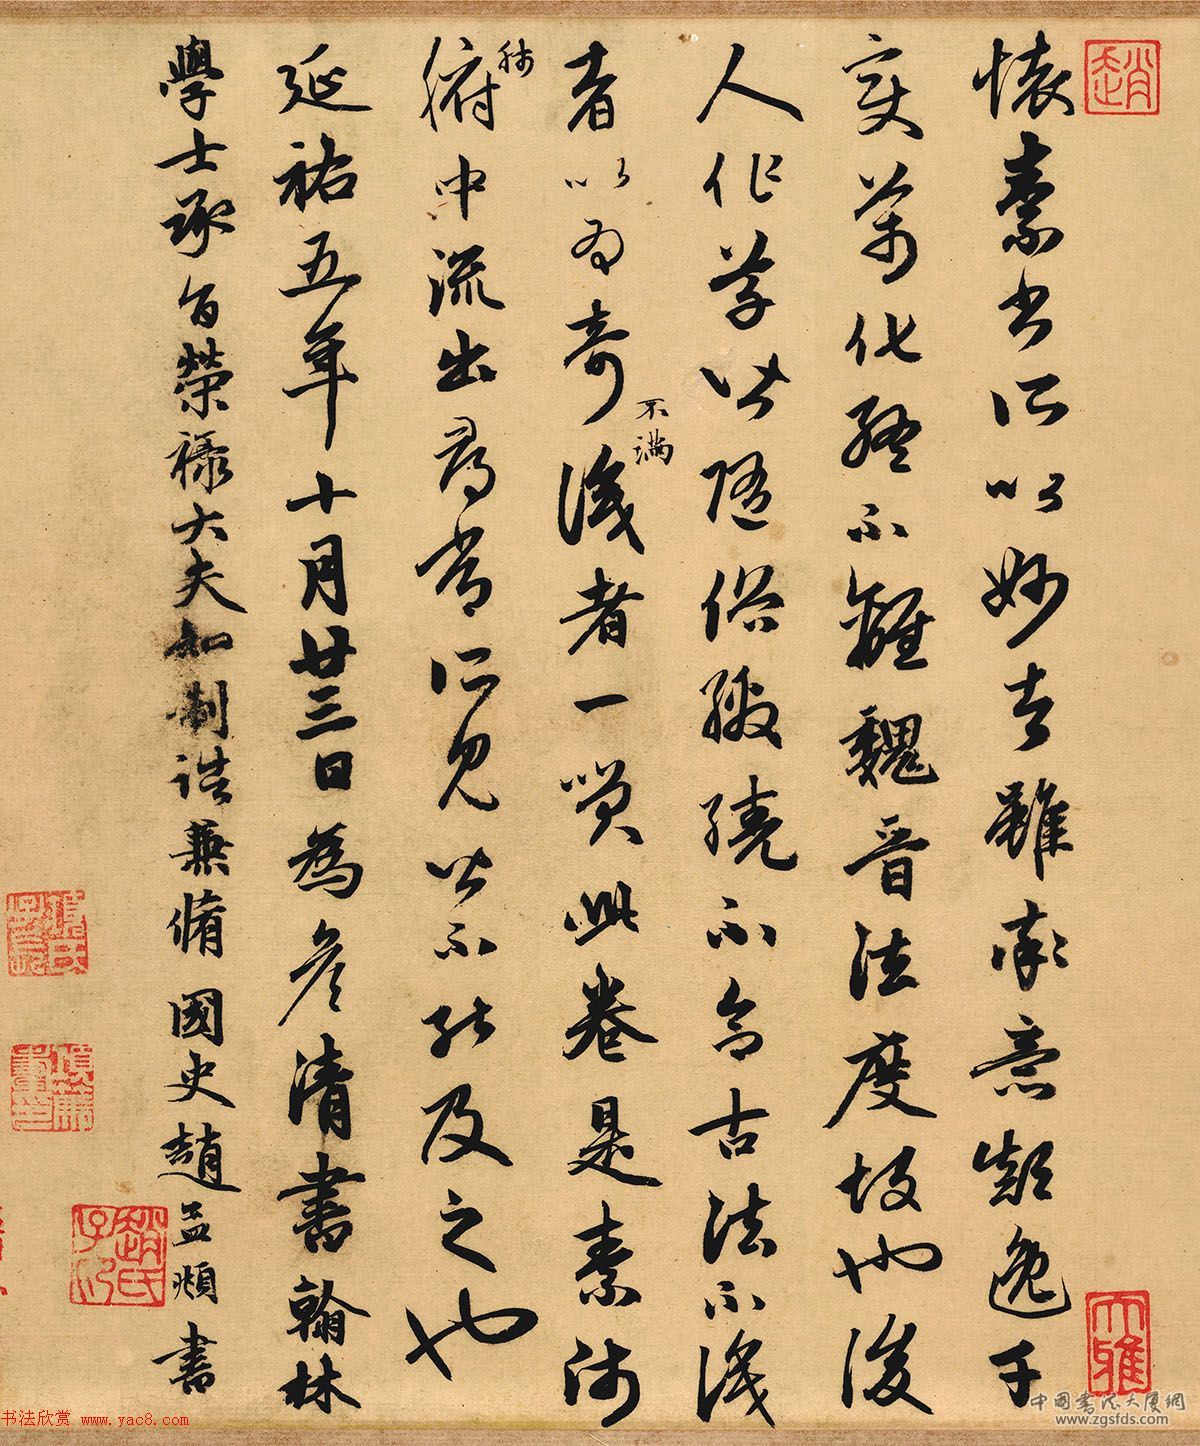 趙
大雅
懷素書所以妙者雖率意顛逸千
變萬化終不離魏晉法度故也後
人作草皆隨俗繳繞不合古法不識
者以為奇不滿識者一笑此卷是素師
肺腑中流出尋常所見皆不能及之也
延祐五年十月廿三日為彥清書翰林
學士承旨榮祿大夫知制誥兼脩國史趙孟頫書
趙氏子昂
书法欣赏 www.yac8.com
中國書法大厦網
www.zgsfds.com